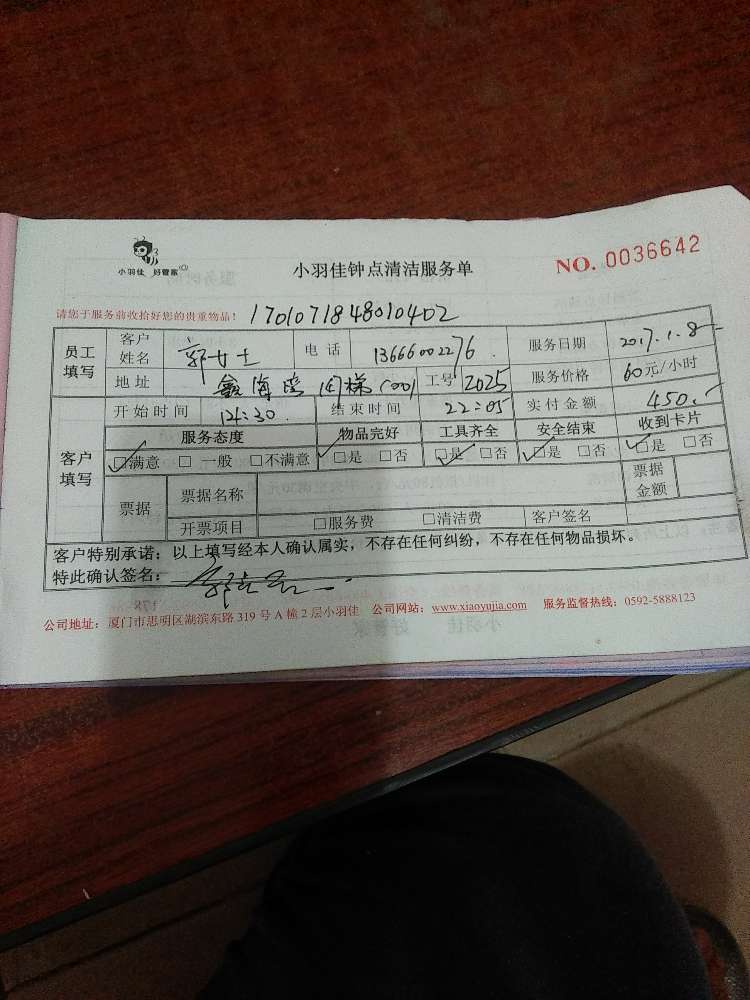 小羽佳 好管家
小羽佳钟点清洁服务单
NO. 0036642
请您于服务前收拾好您的贵重物品! 1701071848010402
员工填写 客户姓名 郭女士 电话 13666002276 服务日期 2017.1.8
地址 鑫海湾 工号 2025 服务价格 60元/小时
客户填写 开始时间 14:30 结束时间 22:05 实付金额 450.
服务态度 物品完好 工具齐全 安全结束 收到卡片
☑满意 □ 一般 □不满意 ☑是 □否 ☑是 □否 ☑是 □否 ☑是 □否
票据 票据名称 票据金额
开票项目 □服务费 □清洁费 客户签名
客户特别承诺:以上填写经本人确认属实,不存在任何纠纷,不存在任何物品损坏。
特此确认签名:
公司地址:厦门市思明区湖滨东路 319 号 A 幢 2 层小羽佳 公司网站:www.xiaoyujia.com 服务监督热线:0592-5888123